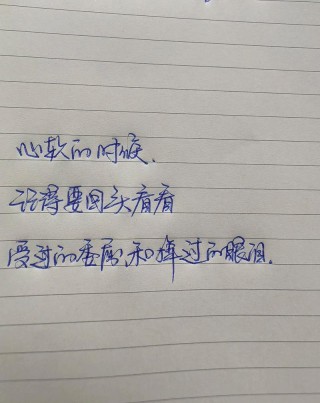 心软的时候.
记得要回头看看
受过的委屈和掉过的眼泪.